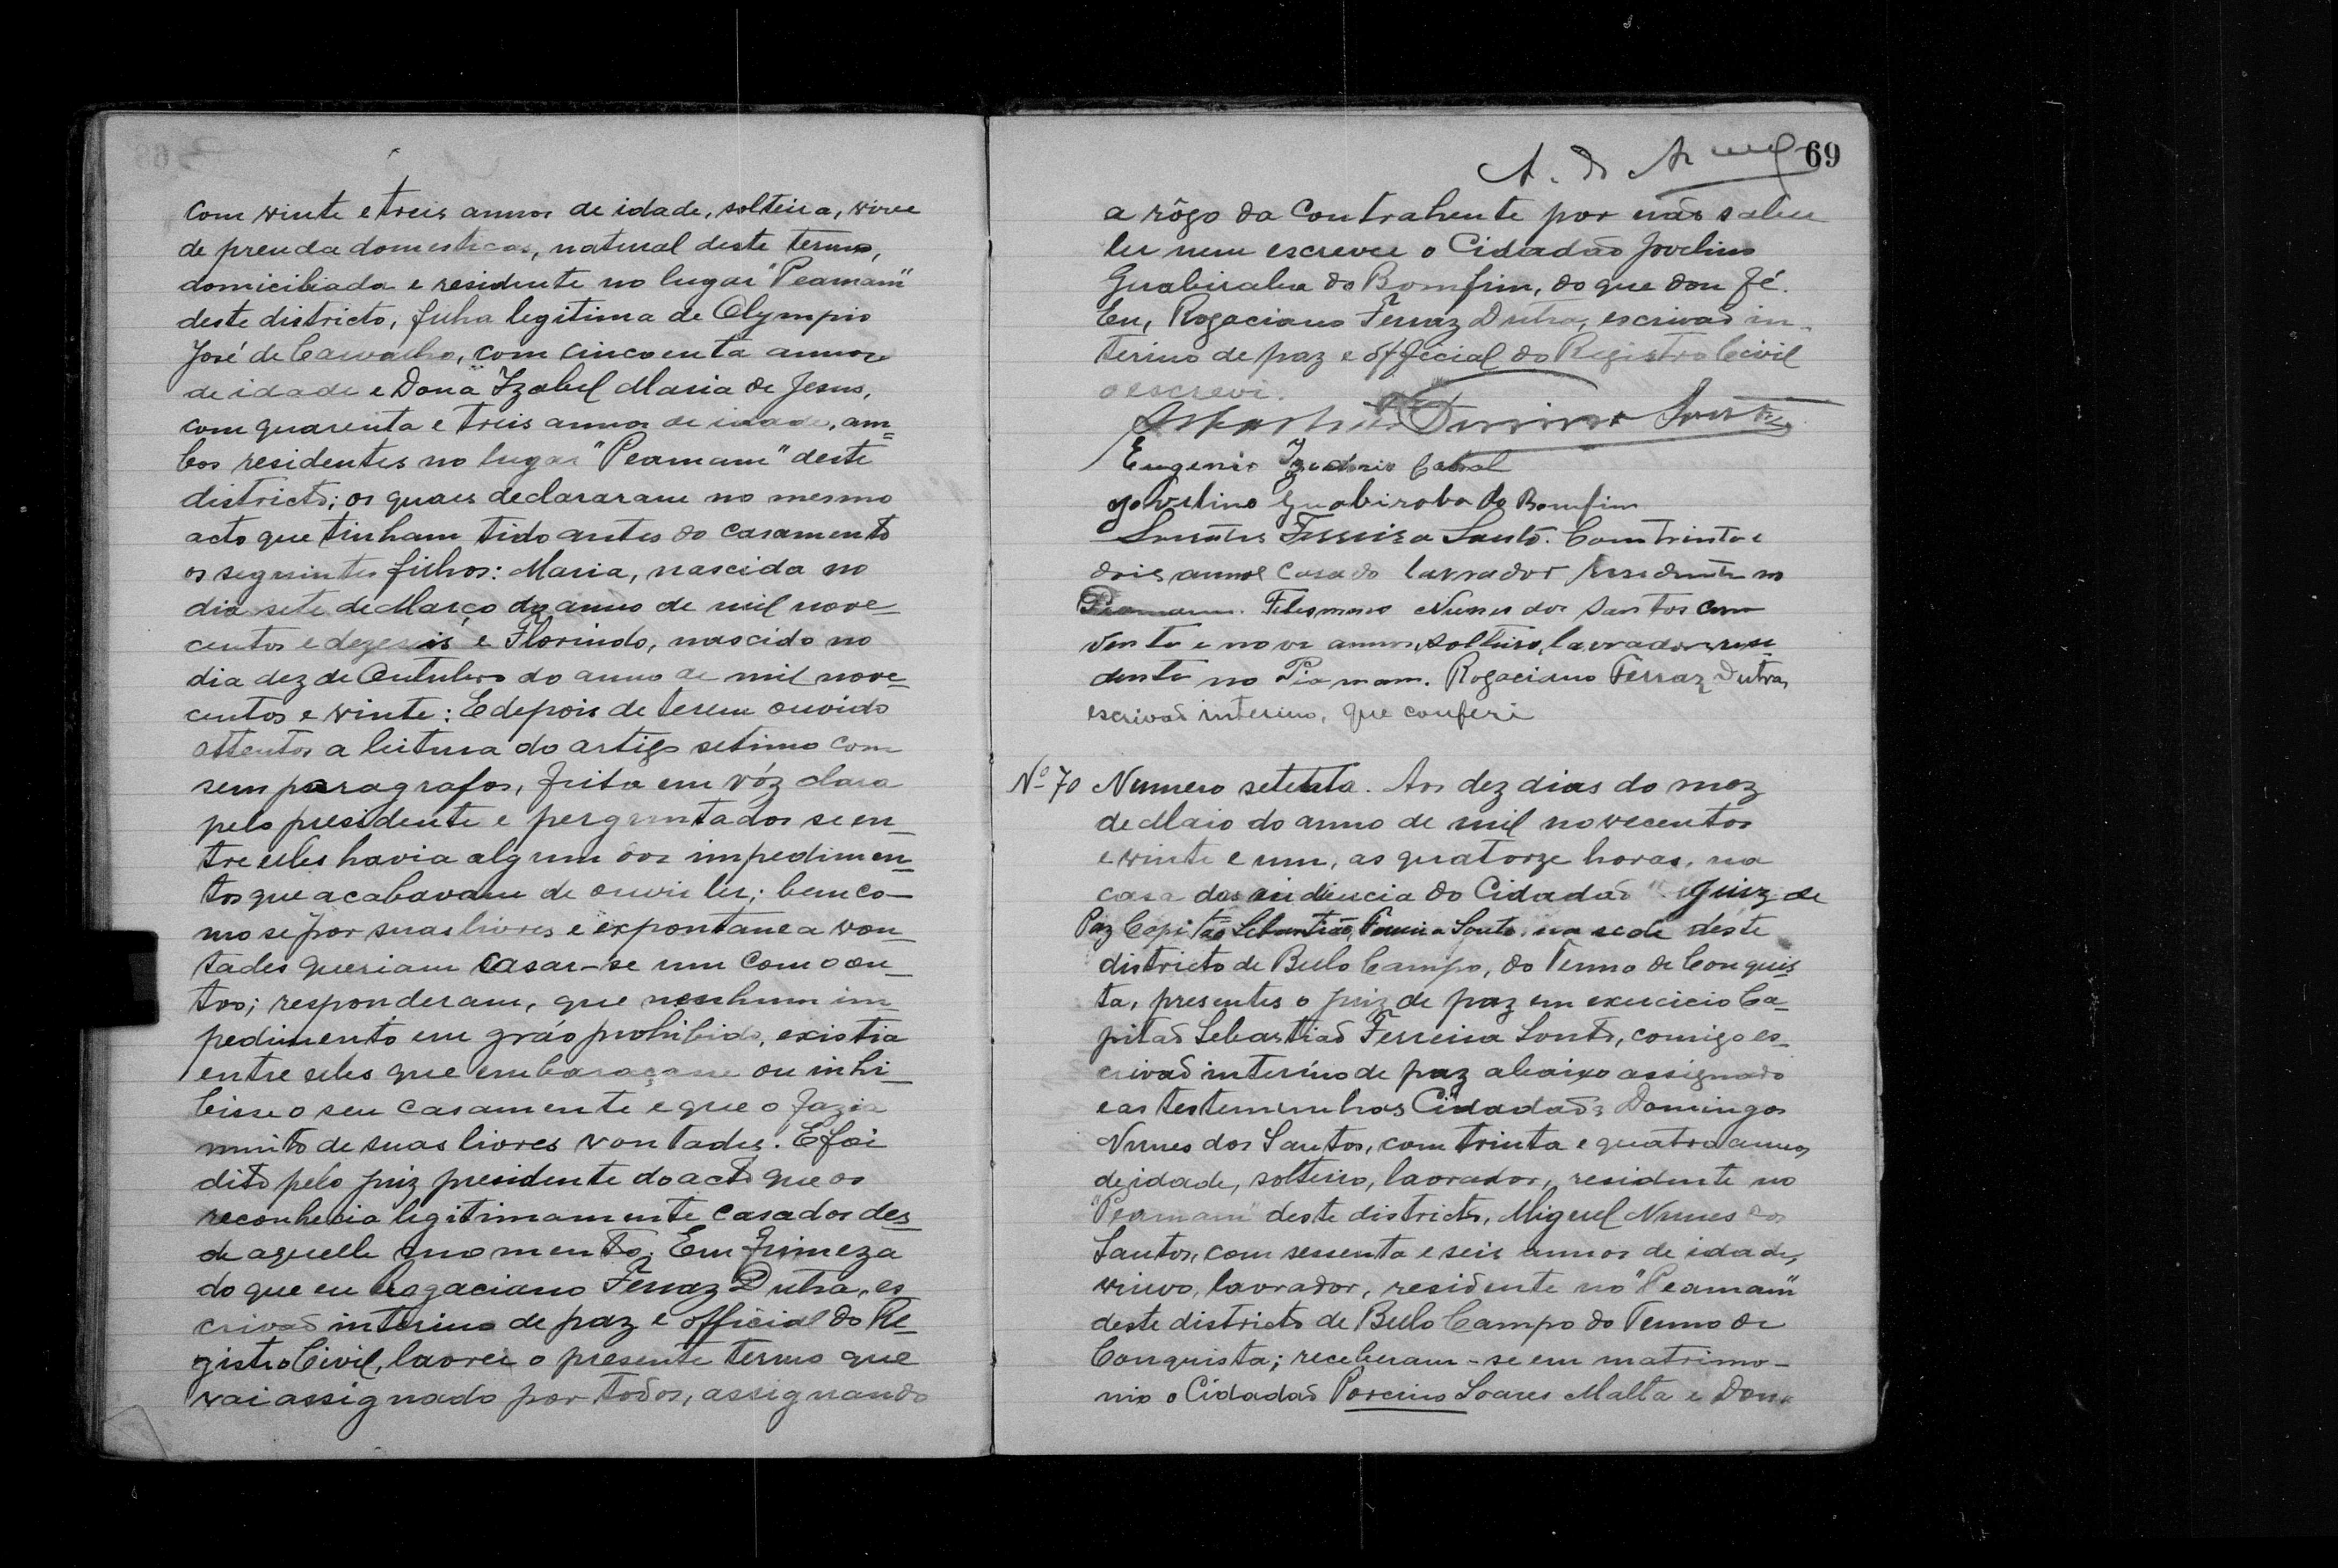 com vinte e treis annos de idade, solteira, vive
de prenda domesticas, natural deste termo,
domiciliada e residente no lugar "Peamam"
deste districto, filha legitima de Olympio
José de Carvalho, com cincoenta annos
de idade e Dona Izabel Maria de Jesus,
com quarenta e treis annos de idade, am=
bos residentes no lugar "Peamam" deste
districto; os quaes declararam no mesmo
acto que tinham tido antes do casamento
os seguintes filhos: Maria, nascida no
dia sete de Março do anno de mil nove-
centos e dezeseis e Florindo, nascido no
dia dez de Outubro do anno de mil nove-
centos e vinte: E depois de terem ouvido
attentos a leitura do artigo setimo com
sem paragrafos, feita em vóz clara
pelo presidente e perguntados se en-
tre elles havia algum dos impedimen-
tos que acabavam de ouvir ler; bem co-
mo se por suas livres e expontanea von-
tades queriam casar-se um com o ou-
tro; responderam, que nenhum im-
pedimento em gráo prohibido, existia
entre elles que embaraçasse ou inhi-
bisse o seu casamente e que o fazia
muito de suas livres vontades. E foi
dito pelo juiz presidente do acto que os
reconhecia legitimamente casados des-
de aquelle momento. Em firmeza
do que eu Rogaciano Ferraz Dutra, es
crivaõ interino de paz e official do Re-
gistro Civil, lavrei o presente termo que
vai assignado por todos, assignando
69
a rôgo da Contrahente por não saber
ler nem escrever o Cidadaõ Jovelino
Guabiraba do Bomfim, do que dou fé.
Eu, Rogaciano Ferraz Dutra, escrivaõ in-
terino de paz e official do Registro Civil
o escrevi.
Eugenio Cabral
Jovelino Guabiraba do Bomfim
Ferreira Souto. Com trinta e
dois annos casado lavrador residente no
Peamam. Nunes dos Santos com
vente e nove annos, solteiro, lavrador, resi-
dente no Piamam. Rogaciano Ferraz Dutra,
escrivaõ interino, que conferi
Nº 70 Numero setenta. Aos dez dias do mez
de Maio do anno de mil novecentos
e vinte e um, as quatorze horas, na
casa da residiencia do Cidadaõ Juiz de
Paz Capitão Sebastião Ferreira Souto, na sede deste
districto de Bello Campo, do Termo de Conquis
ta, presentes o juiz de paz em exercicio Ca-
pitaõ Sebastiaõ Ferreira Souto, comigo es-
crivaõ interino de paz abaixo assignado
e as testemunhas Cidadaõs Domingos
Nunes dos Santos, com trinta e quatro annos
de idade, solteiro, lavrador, residente no
"Peamam" deste districto, Miguel Nunes dos
Santos, com sessenta e seis annos de idade,
viuvo, lavrador, residente no "Peamam"
deste districto de Bello Campo do Termo de
Conquista; receberam-se em matrimo-
nio o Cidadaõ Porcino Soares Malta e Dona